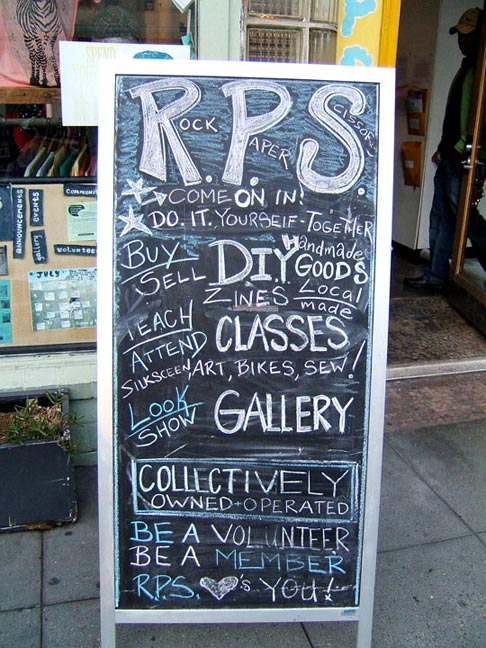 SPEND
R.P.S.
ROCK PAPER SCISSORS
COME ON IN!
DO. IT. YOURSELF-TOGETHER
BUY SELL
DIY Handmade GOODS
ZINES - Local made
TEACH ATTEND
CLASSES
SILKSCEEN, ART, BIKES, SEW!
LOOK SHOW
GALLERY
COLLECTIVELY
OWNED + OPERATED
BE A VOLUNTEER
BE A MEMBER
R.P.S. ♥'s YOU!
announcements
events
gallery
volunteer
JULY